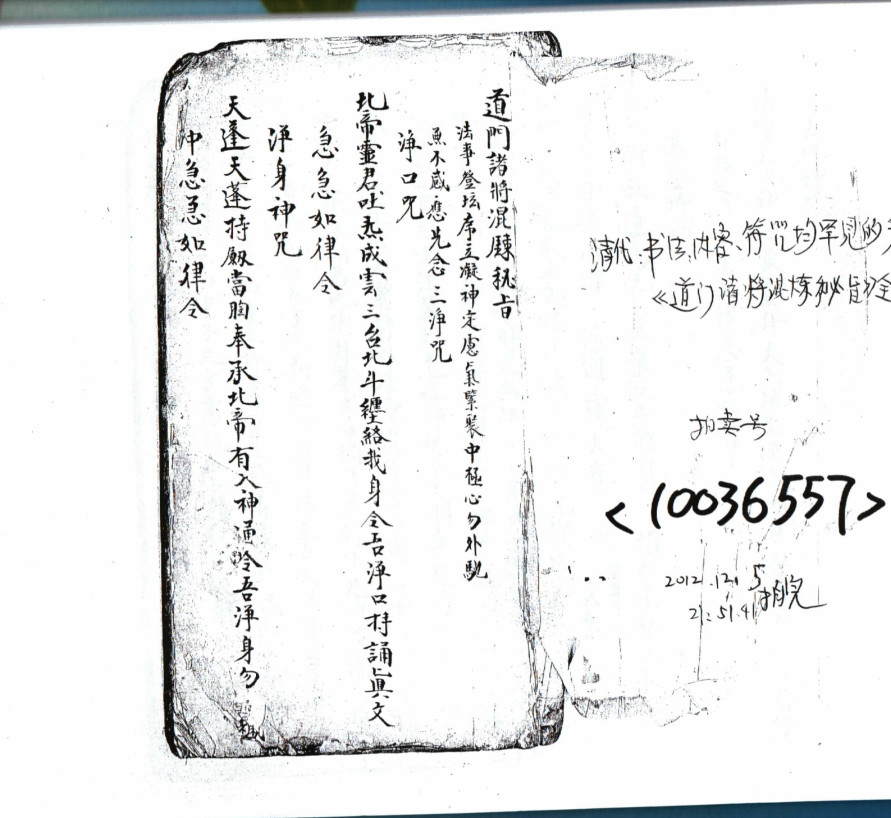 道門諸將混煉秘旨
法事登坛席立凝神定慮氣緊聚中極心勿外馳
無不感應先念三淨咒
淨口咒
北帝靈君吐炁成雲三台北斗纏絡我身令吾淨口持誦眞文
急急如律令
淨身神咒
天蓬天蓬持劔當胸奉承北帝有大神通令吾淨身勿
中急急如律令
清代、书法、内容、符咒均罕见的
《道门诸将混炼秘旨》全
拍卖号
<10036557>
2012.12.5
21:51.41拍完